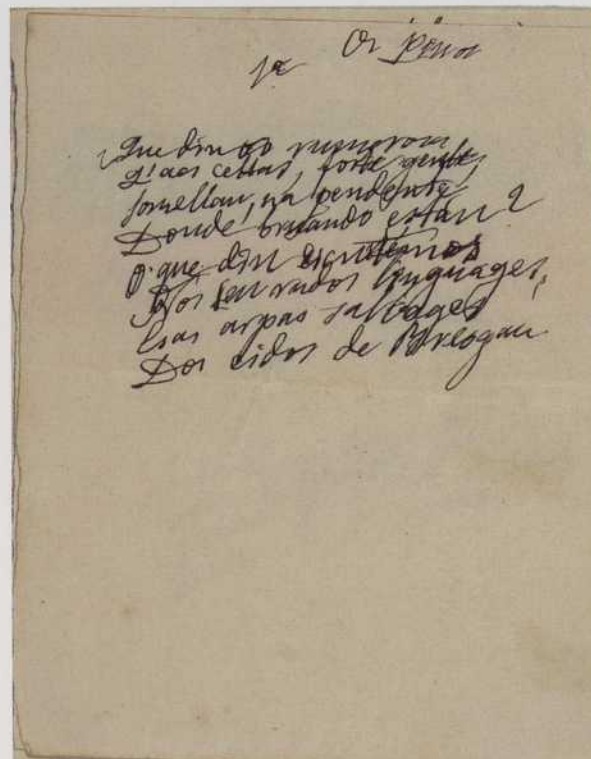 Os pinos
¿Que din os rumorosos
q' aos celtas, forte gente,
somellan, na pendente
Donde bruando están?
O que din escoitemos
Nos seu rudos linguages,
Esas arpas salvages
Dos eidos de Breogan